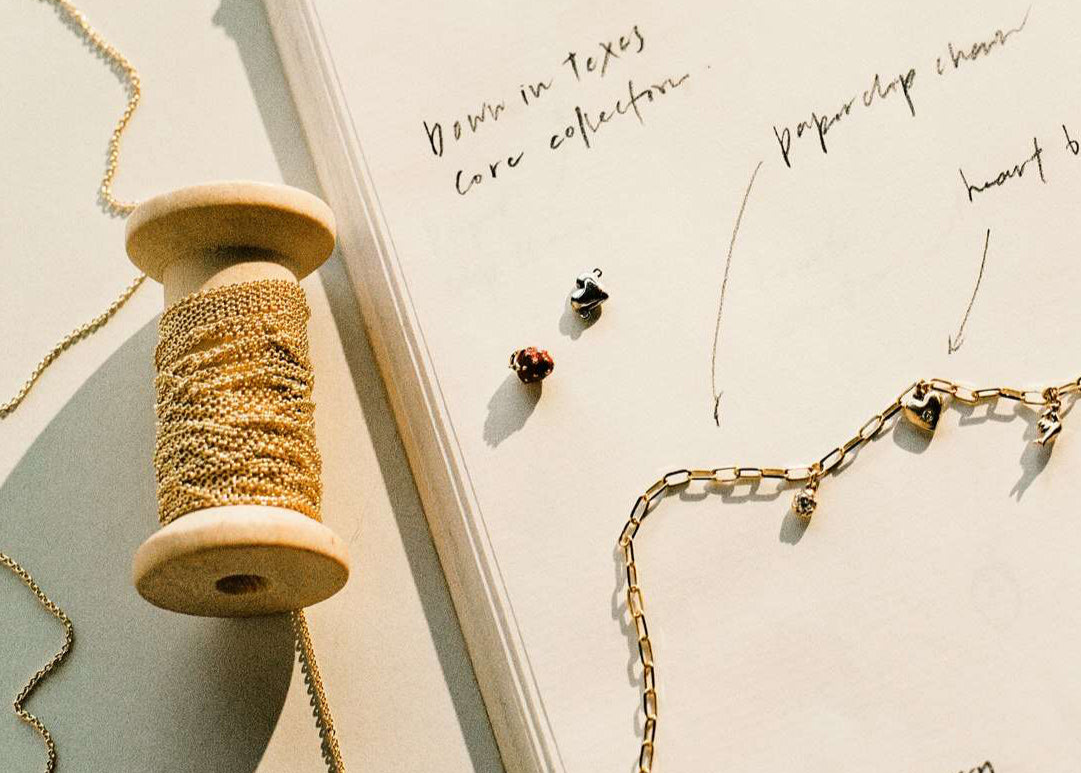 Down in Texas
core collection.
paperclip chain
heart b